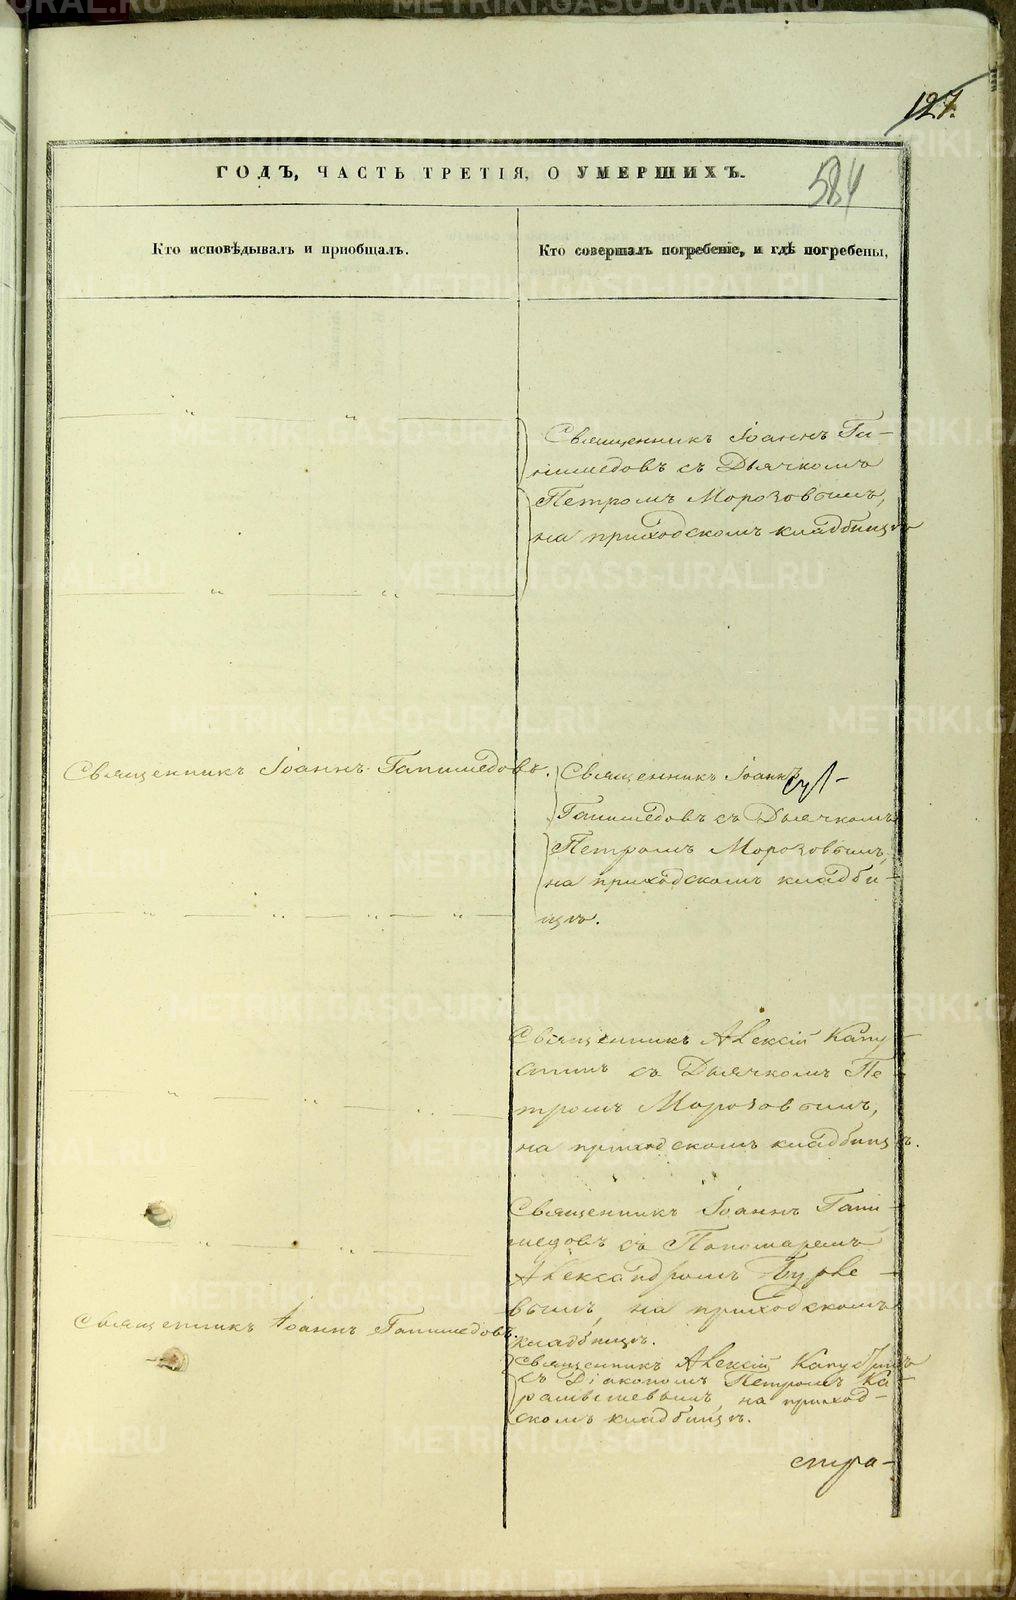 127.
584
ГОДЪ, ЧАСТЬ ТРЕТІЯ, О УМЕРШИХЪ.
Кто исповѣдывалъ и пріобщалъ.
Кто совершалъ погребеніе, и гдѣ погребены,
Священникъ Іоаннъ Га-
нимедовъ съ Дьячкомъ
Петромъ Морозовымъ,
на приходскомъ кладбищѣ
Священникъ Іоаннъ Ганимедовъ.
Священникъ Іоаннъ
Ганимедовъ съ Дьячкомъ
Петромъ Морозовымъ,
на приходскомъ кладби-
щѣ.
Священникъ Алексій Капу-
стинъ съ Дьячкомъ Пе-
тромъ Морозовымъ,
на приходскомъ кладбищѣ.
Священникъ Іоаннъ Гани-
медовъ съ Пономаремъ
Александромъ
на приходскомъ
кладбищѣ.
Священникъ Іоаннъ Ганимедовъ.
Священникъ Алексій Капустинъ
съ Діакономъ Петромъ Ка-
на приход-
скомъ кладбищѣ.
METRIKI.GASO-URAL.RU